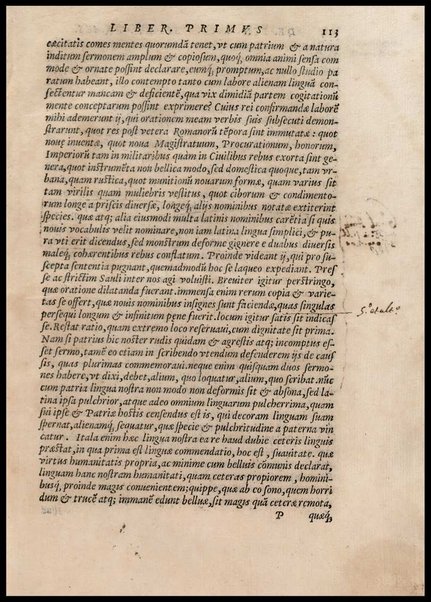 LIBER. PRIMVS 113
cæcitatis comes mentes quorundā tenet, vt cum patrium & a natura
inditum sermonem amplum & copiosum, quoq́, omnia animi sensa com
mode & ornate possint declarare, eumq́, promptum, ac nullo studio pa
ratum habeant, illo contempto tanto cum labore alienam linguā con-
sectentur mancam & deficientē, qua vix dimidiā partem cogitationū
mente conceptarum possint exprimere? Cuius rei confirmandæ laborē
mihi ademerunt ij, qui orationem meam verbis suis subsecuti demon-
strarunt, quot res post vetera Romanorū tēpora sint immutatæ: quot
nouę inuentæ, quot noua Magistratuum, Procurationum, honorum,
Imperiorū tam in militaribus quàm in Ciuilibus rebus exorta sint ge-
nera, quot instrumēta non bellica modo, sed domestica quoque, tam vr-
bana, quam rustica, quot munitionū nouarum formæ, quam varius sit
tam virilis quam muliebris vestitus, quot ciborum & condimento-
rum longe a priscis diuersæ, longeq́, alijs nominibus notatæ extiterint
species. quæ atq; alia eiusmodi multa latinis nominibus carētia si quis
nouis vocabulis velit nominare, non iam latina lingua simplici, & pu-
ra vti erit dicendus, sed monstrum deforme gignere e duabus diuersis
maleq́, cohærentibus rebus conflatum. Proinde videant ij, qui pro su-
scepta sententia pugnant, quemadmodū hoc se laqueo expediant. Pres
se ac strictim Sauli inter nos agi voluisti. Breuiter igitur perstringo,
quæ oratione dilatanda fuerant. immensa enim rerum copia & varie-
tas se offert, quæ nouis nominibus insignes sunt faciendæ, quas singulas
persequi longum & infinitum pene fuerit. locum igitur satis sit indicas
se. Restat ratio, quam extremo loco reseruaui, cum dignitate sit prima.
Nam si patrius hic noster rudis quidam & agrestis atq; incomptus es-
set sermo, tamē eo etiam in scribendo vtendum defenderem ijs de cau-
sis, quas plurimas commemoraui. neque enim quisquam duos sermo-
nes habere, vt dixi, debet, alium, quo loquatur, alium, quo scribat. nūc
cum patria lingua nostra non modo non deformis sit & absona, sed la
tina ipsa pulchrior, atque adeo omnium linguarum pulcherrima, quam
sui ipse & Patriæ hostis censendus est is, qui decoram linguam suam
spernat, alienamq́, sequatur, quæ specie & pulchritudine a paterna vin
catur. Itala enim hæc lingua nostra ea re haud dubie ceteris linguis
præstat, in qua prima est linguæ commendatio, hoc est, suauitate. quæ
virtus humanitatis propria, ac minime cum belluis cōmunis declarat,
linguam hanc nostram humanitati, quam ceteras propiorem, homini-
busq́, proinde magis conuenientem; quippe, quæ ab eo sono, quem horri
dum & trucē atq; immanē edunt belluæ, sit magis quā ceteræ remota,
P quæq́,